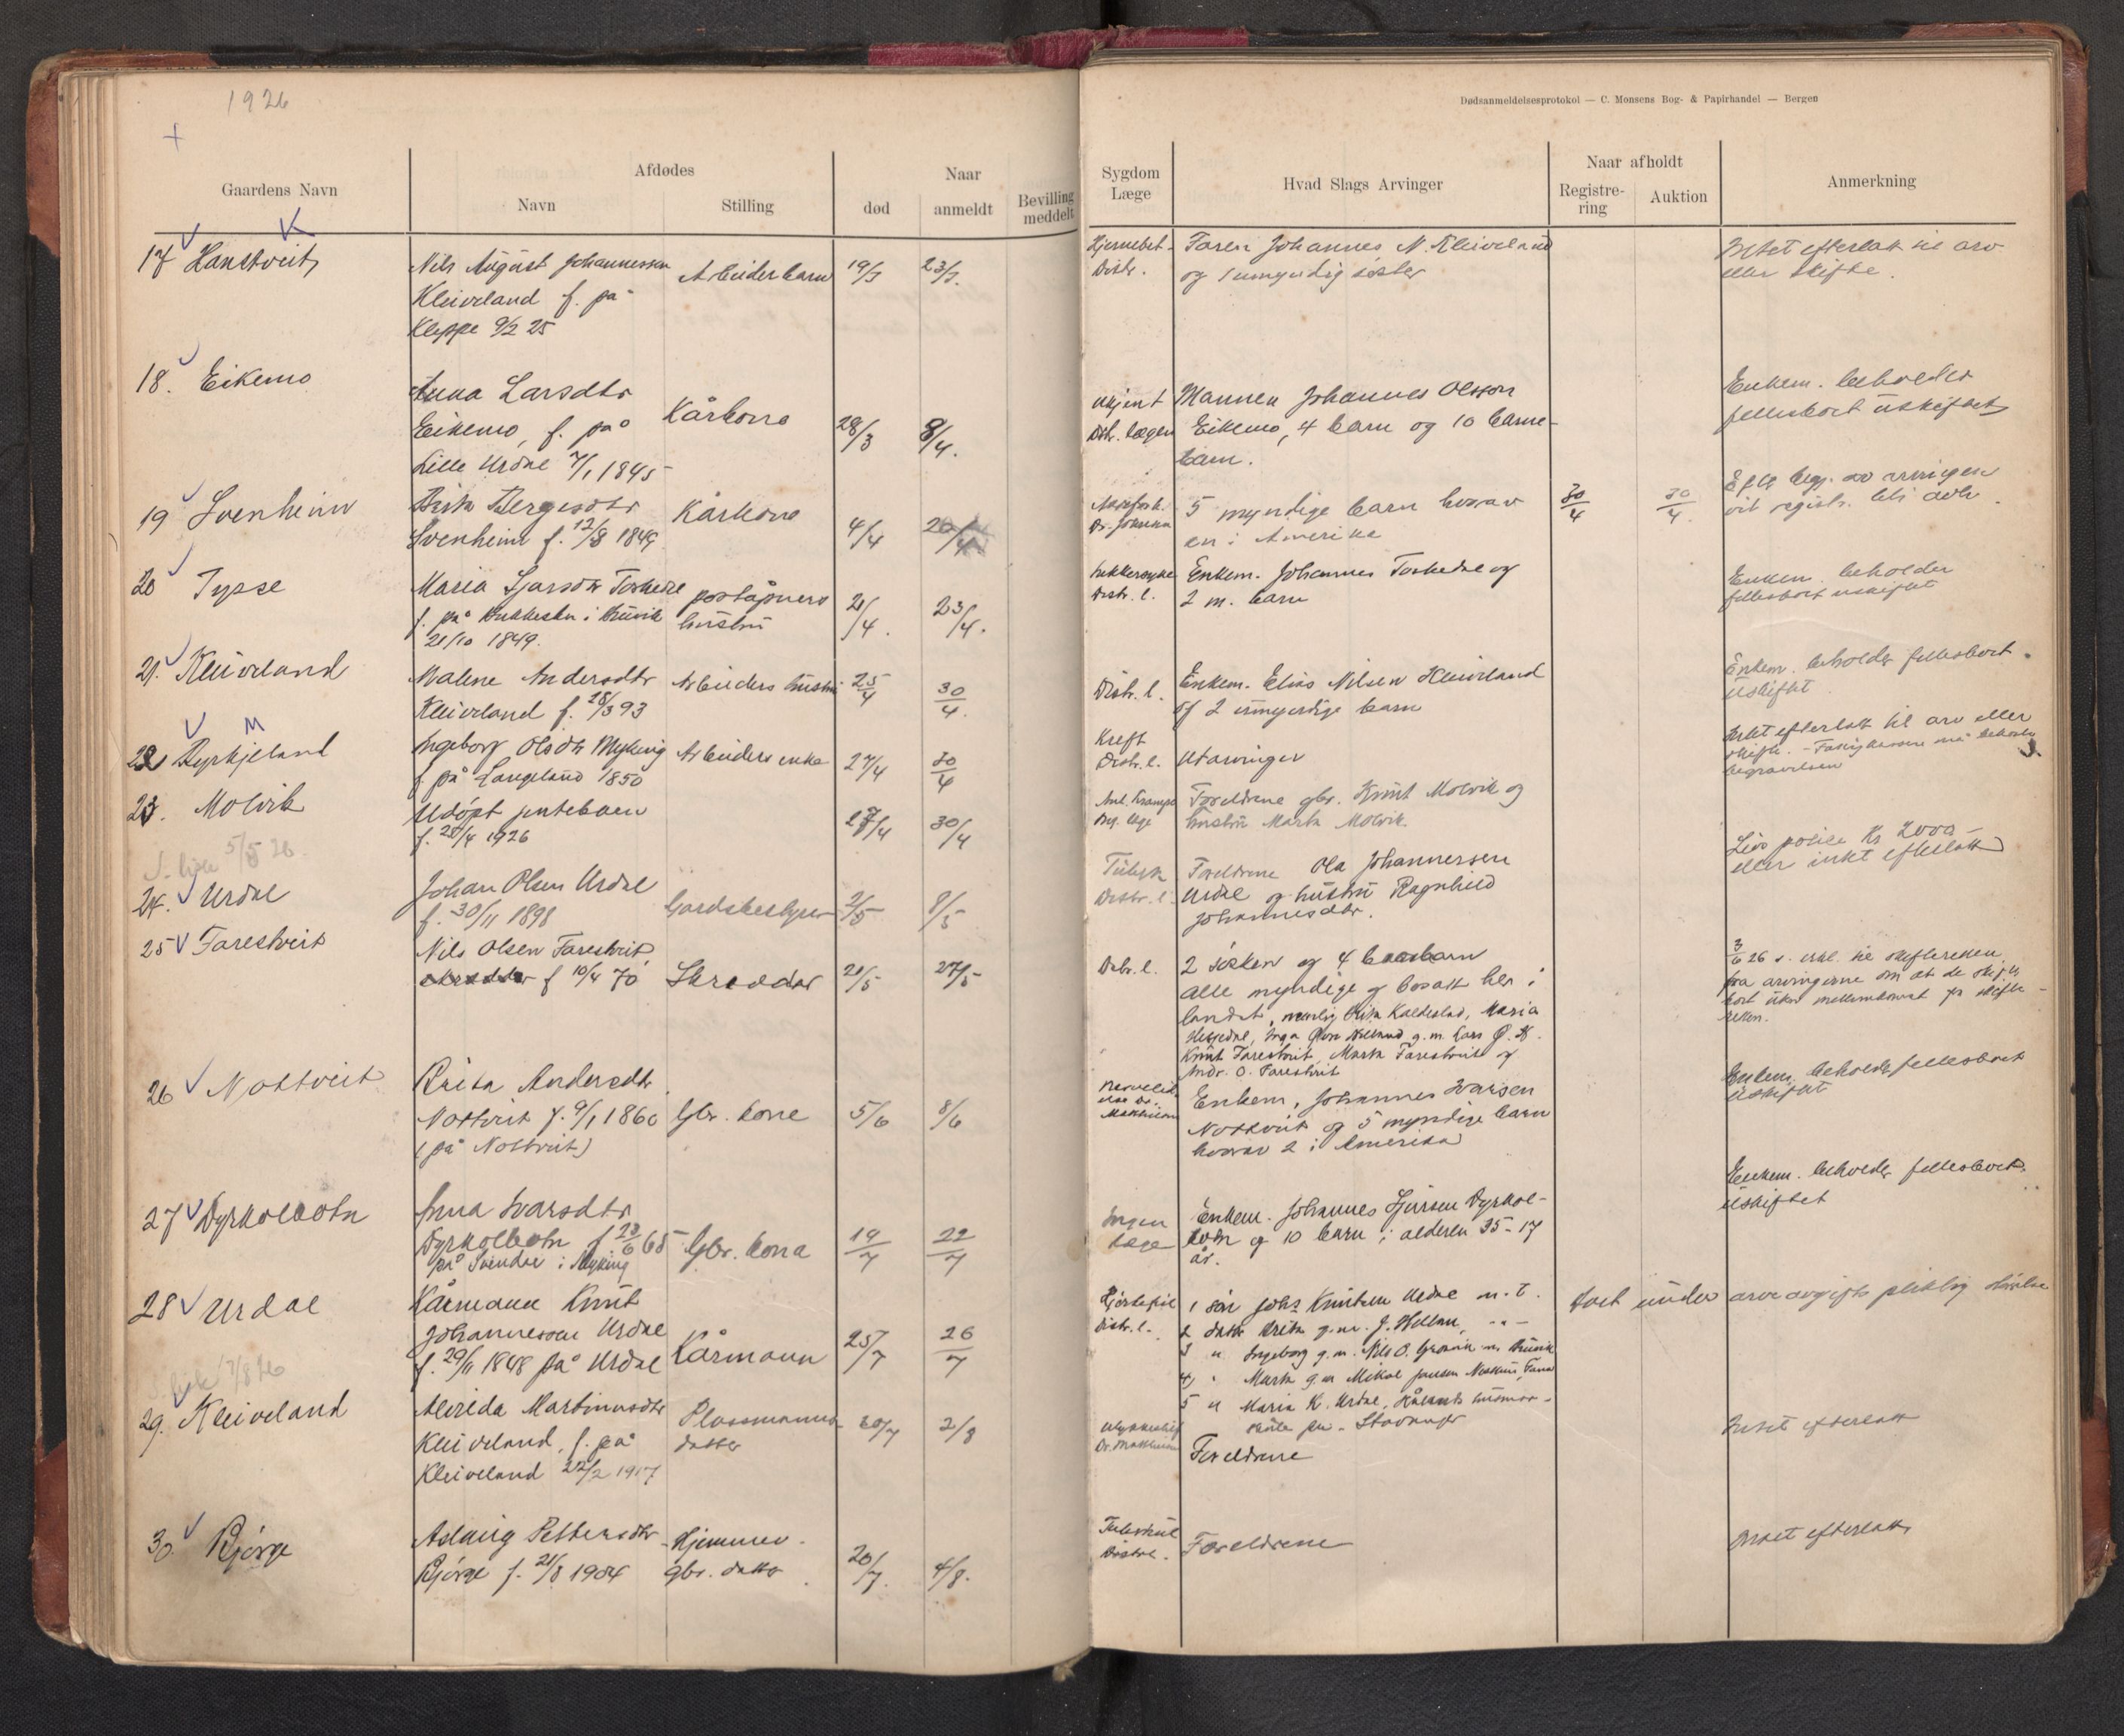 1926
Dødsanmeldelsesprotokol — C. Monsens Bog- & Papirhandel — Bergen
Gaardens Navn
Afdødes
Navn
Stilling
Naar
død
anmeldt
Bevilling
meddelt
Sygdom
Læge
Hvad Slags Arvinger
Naar afholdt
Registre-
ring
Auktion
Anmerkning
17 Hanstveit
Nils August Johannessen
Kleiveland f. på
Kleppe 9/2 25
Arbeiderbarn
19/3
23/3.
Hjernebet.
Distr.
Faren Johannes N. Kleiveland
og 1 umyndig søster
Intet efterlatt til arv
eller skifte.
18. Eikemo
Anna Larsdtr
Eikemo, f. på
Lille Urdal 7/1 1845
Kårkona
28/3
8/4.
ukjent
Distr. lægen
Mannen Johannes Olsson
Eikemo, 4 barn og 10 barne-
barn.
Enkem. beholder
fellesboet uskiftet
19 Svenheim
Brita Bergesdtr
Svenheim f. 12/8 1849
Kårkona
4/4
20/4
5 myndige barn hvorav
en i Amerika
30/4
30/4.
Efter begj. av arvingen
vil registr. bli avh.
20 Tysse
Maria
f. på i Bruvik
21/10 1849.
poståpners
hustru
21/4.
23/4.
Sukkersyke
Distr. l.
Enkem. Johannes og
2 m. barn
Enkem. beholder
fellesboet uskiftet
21. Kleiveland
Malene Andersdtr
Kleiveland f. 28/3 93
Arbeiders hustru
25/4
30/4.
Distr. l.
Enkem. Elias Nilsen Kleiveland
og 2 umyndige barn
Enkem. beholder fellesboet
uskiftet
22 Dyrkjeland
Ingeborg Olsdtr Myking
f på Langeland 1850
Arbeiders enke
27/4
30/4
Kreft
Distr. l.
Utarvinger
Intet efterlatt til arv eller
skifte. - Fattigkassen må bekoste
begravelsen
23. Molvik
Udøpt jentebarn
f. 20/4 1926
27/4
30/4
Foreldrene gbr. Knut Molvik og
hustru Marta Molvik
5/5 26.
24. Urdal
Johan Olsen Urdal
f. 30/11 1898
Gardsbestyrer
2/5
8/5
Tuberk
Distr. l.
Foreldrene Ola Johannessen
Urdal og hustru Ragnhild
Johannesdtr.
Livs police Kr 2000 -
eller intet efterlatt
25 Farestveit
Nils Olsen Farestveit,
f 10/4 70
Skredder
21/5
27/5
Distr. l.
2 søsken og 4
alle myndige og bosatt her i
landet, nemlig Brita Kaldestad, Maria
Hesjedal, Inga g.m. Lars
Knut Farestveit, Marta Farestveit og
Andr. O. Farestveit
3/6 26 s. erkl. til skifteretten
fra arvingerne om at de skifter
boet uten mellemkomst fr skifte-
retten.
26 Nottveit
Brita Andersdtr
Nottveit f. 9/1 1860
(på Nottveit)
Gbr. kone
5/6
8/6
Enkem, Johannes Ivarsen
Nottveit og 5 myndige barn
hvorav 2 i Amerika
Enkem. beholder fellesboet
uskiftet
27 Dyrkolbotn
Anna Ivarsdtr
Dyrkolbotn f 23/6 65
på i Myking
Gbr. kona
19/7
22/7
Ingen
læge
Enkem. Johannes Dyrkol-
botn og 10 barn i alderen 35-17
år.
Enkem. beholder fellesboet
uskiftet
28 Urdal
Kårmann Knut
Johannessen Urdal
f. 29/11 1848 på Urdal
Kårmann
25/7
26/7
Hjertefeil
Distr. l.
1 søn Johs Knutsen Urdal
2 datter Brita g.m. J. Helland
3 " Ingeborg g.m. Nils O. Bruvik
4) " Marta g.m Mikal Fana
5 " Maria K. Urdal,
Stavanger
boet under arveavgifts pliktig
29. Kleiveland
Alvilda Martinusdtr
Kleiveland, f. på
Kleiveland 22/2 1917
Plassmanns
datter
30/7
2/8
Foreldrene
Intet efterlatt
30 Bjørge
Aslaug Pettersdtr
Bjørge f. 21/8 1904
Hjemmev.
gbr. datter
20/7.
4/8.
Tuberkul
Distr. l.
Foreldrene
Intet efterlatt